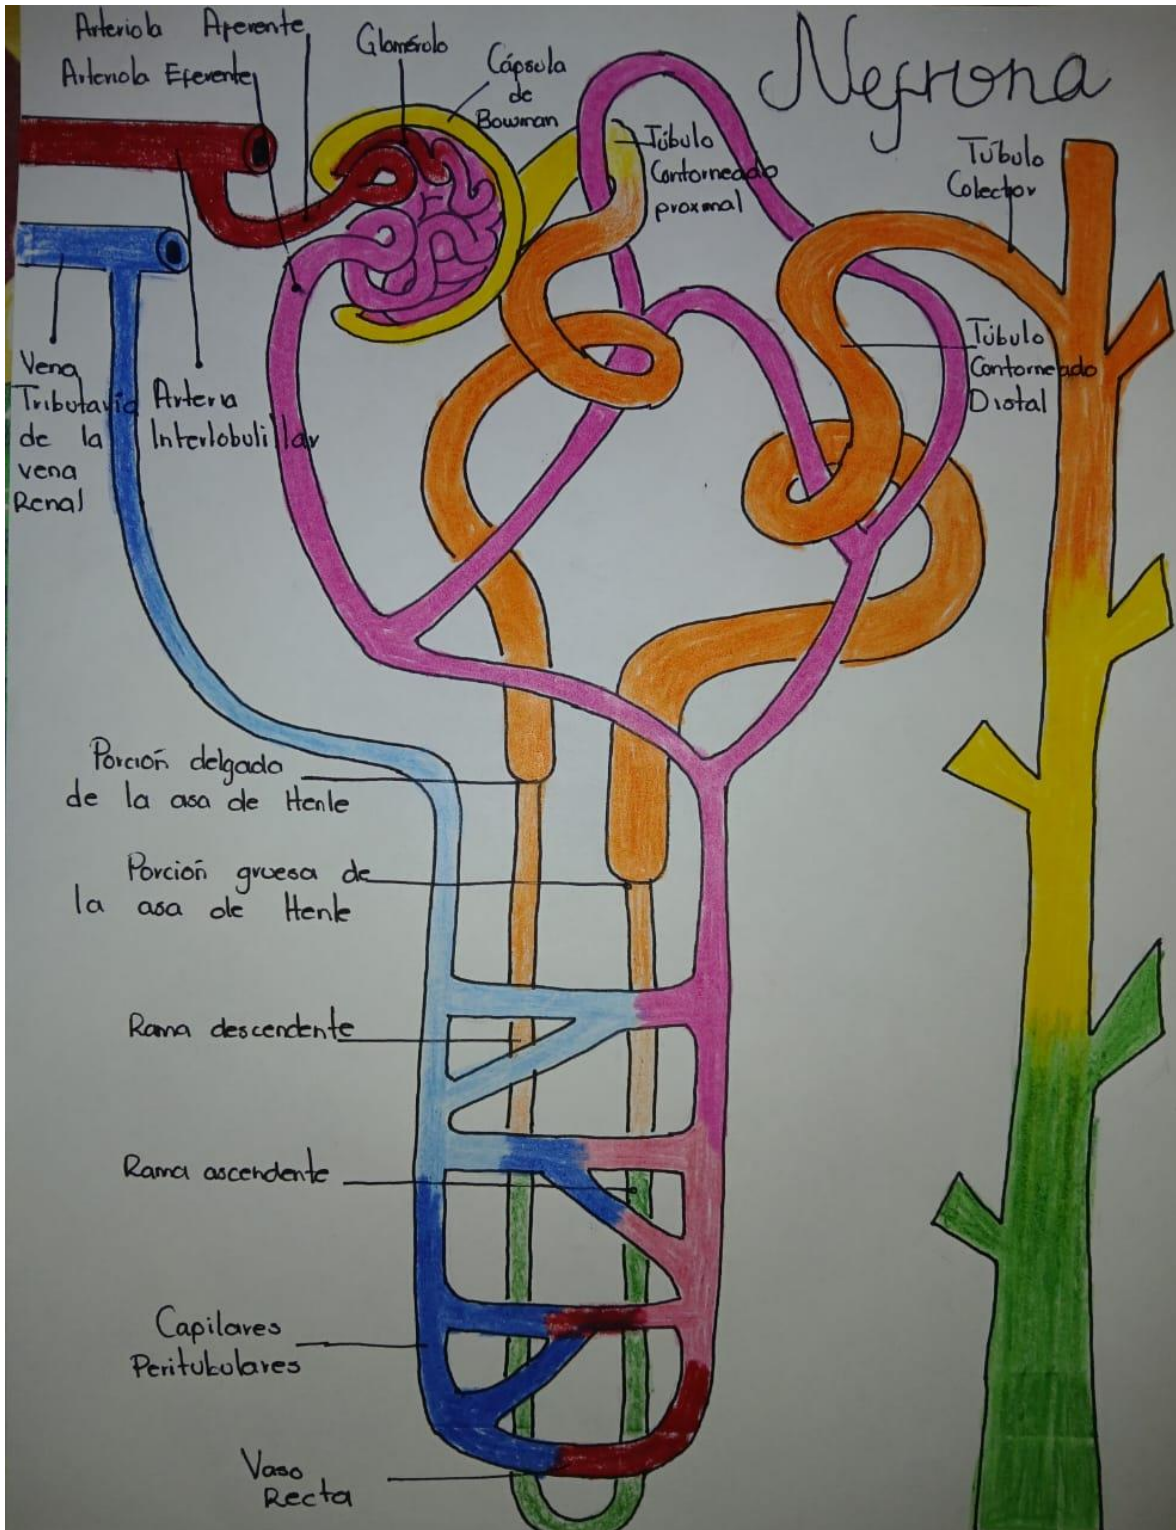 Nefrona
Arteriola Aferente
Arteriola Eferente
Glomérolo
Cápsula
de
Bowman
Túbulo
Contorneado
proxmal
Túbulo
Colector
Túbulo
Contorneado
Distal
Vena
Tributaria
de la
vena
Renal
Arteria
Interlobulillar
Porción delgada
de la asa de Henle
Porción gruesa de
la asa de Henle
Rama descendente
Rama ascendente
Capilares
Peritubulares
Vaso
Recta